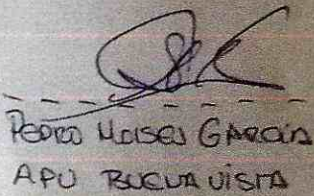 PEDRO MOISES GARCIA
APU BUENA VISTA